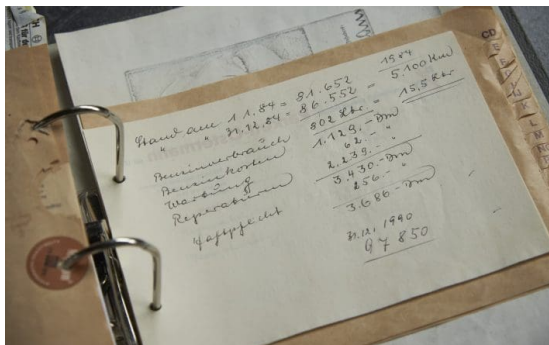 1984
Stand am 1.1.84 = 81.652
" " 31.12.84 = 86.552 = 5.100 Km
Benzinverbrauch 802 Ltr. = 15,5 Ltr
Benzinkosten 1.129.- Dm
Wartung 62.- "
Reperaturen 2.239.- "
3.430.- Dm
Haftpflicht 256.- "
3.686.- Dm
31.12.1990
97850
CD